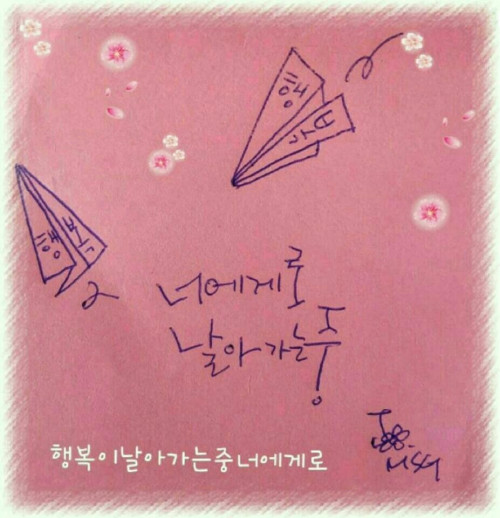 행
복
행
복
너에게로
날아가는중
행복이날아가는중너에게로